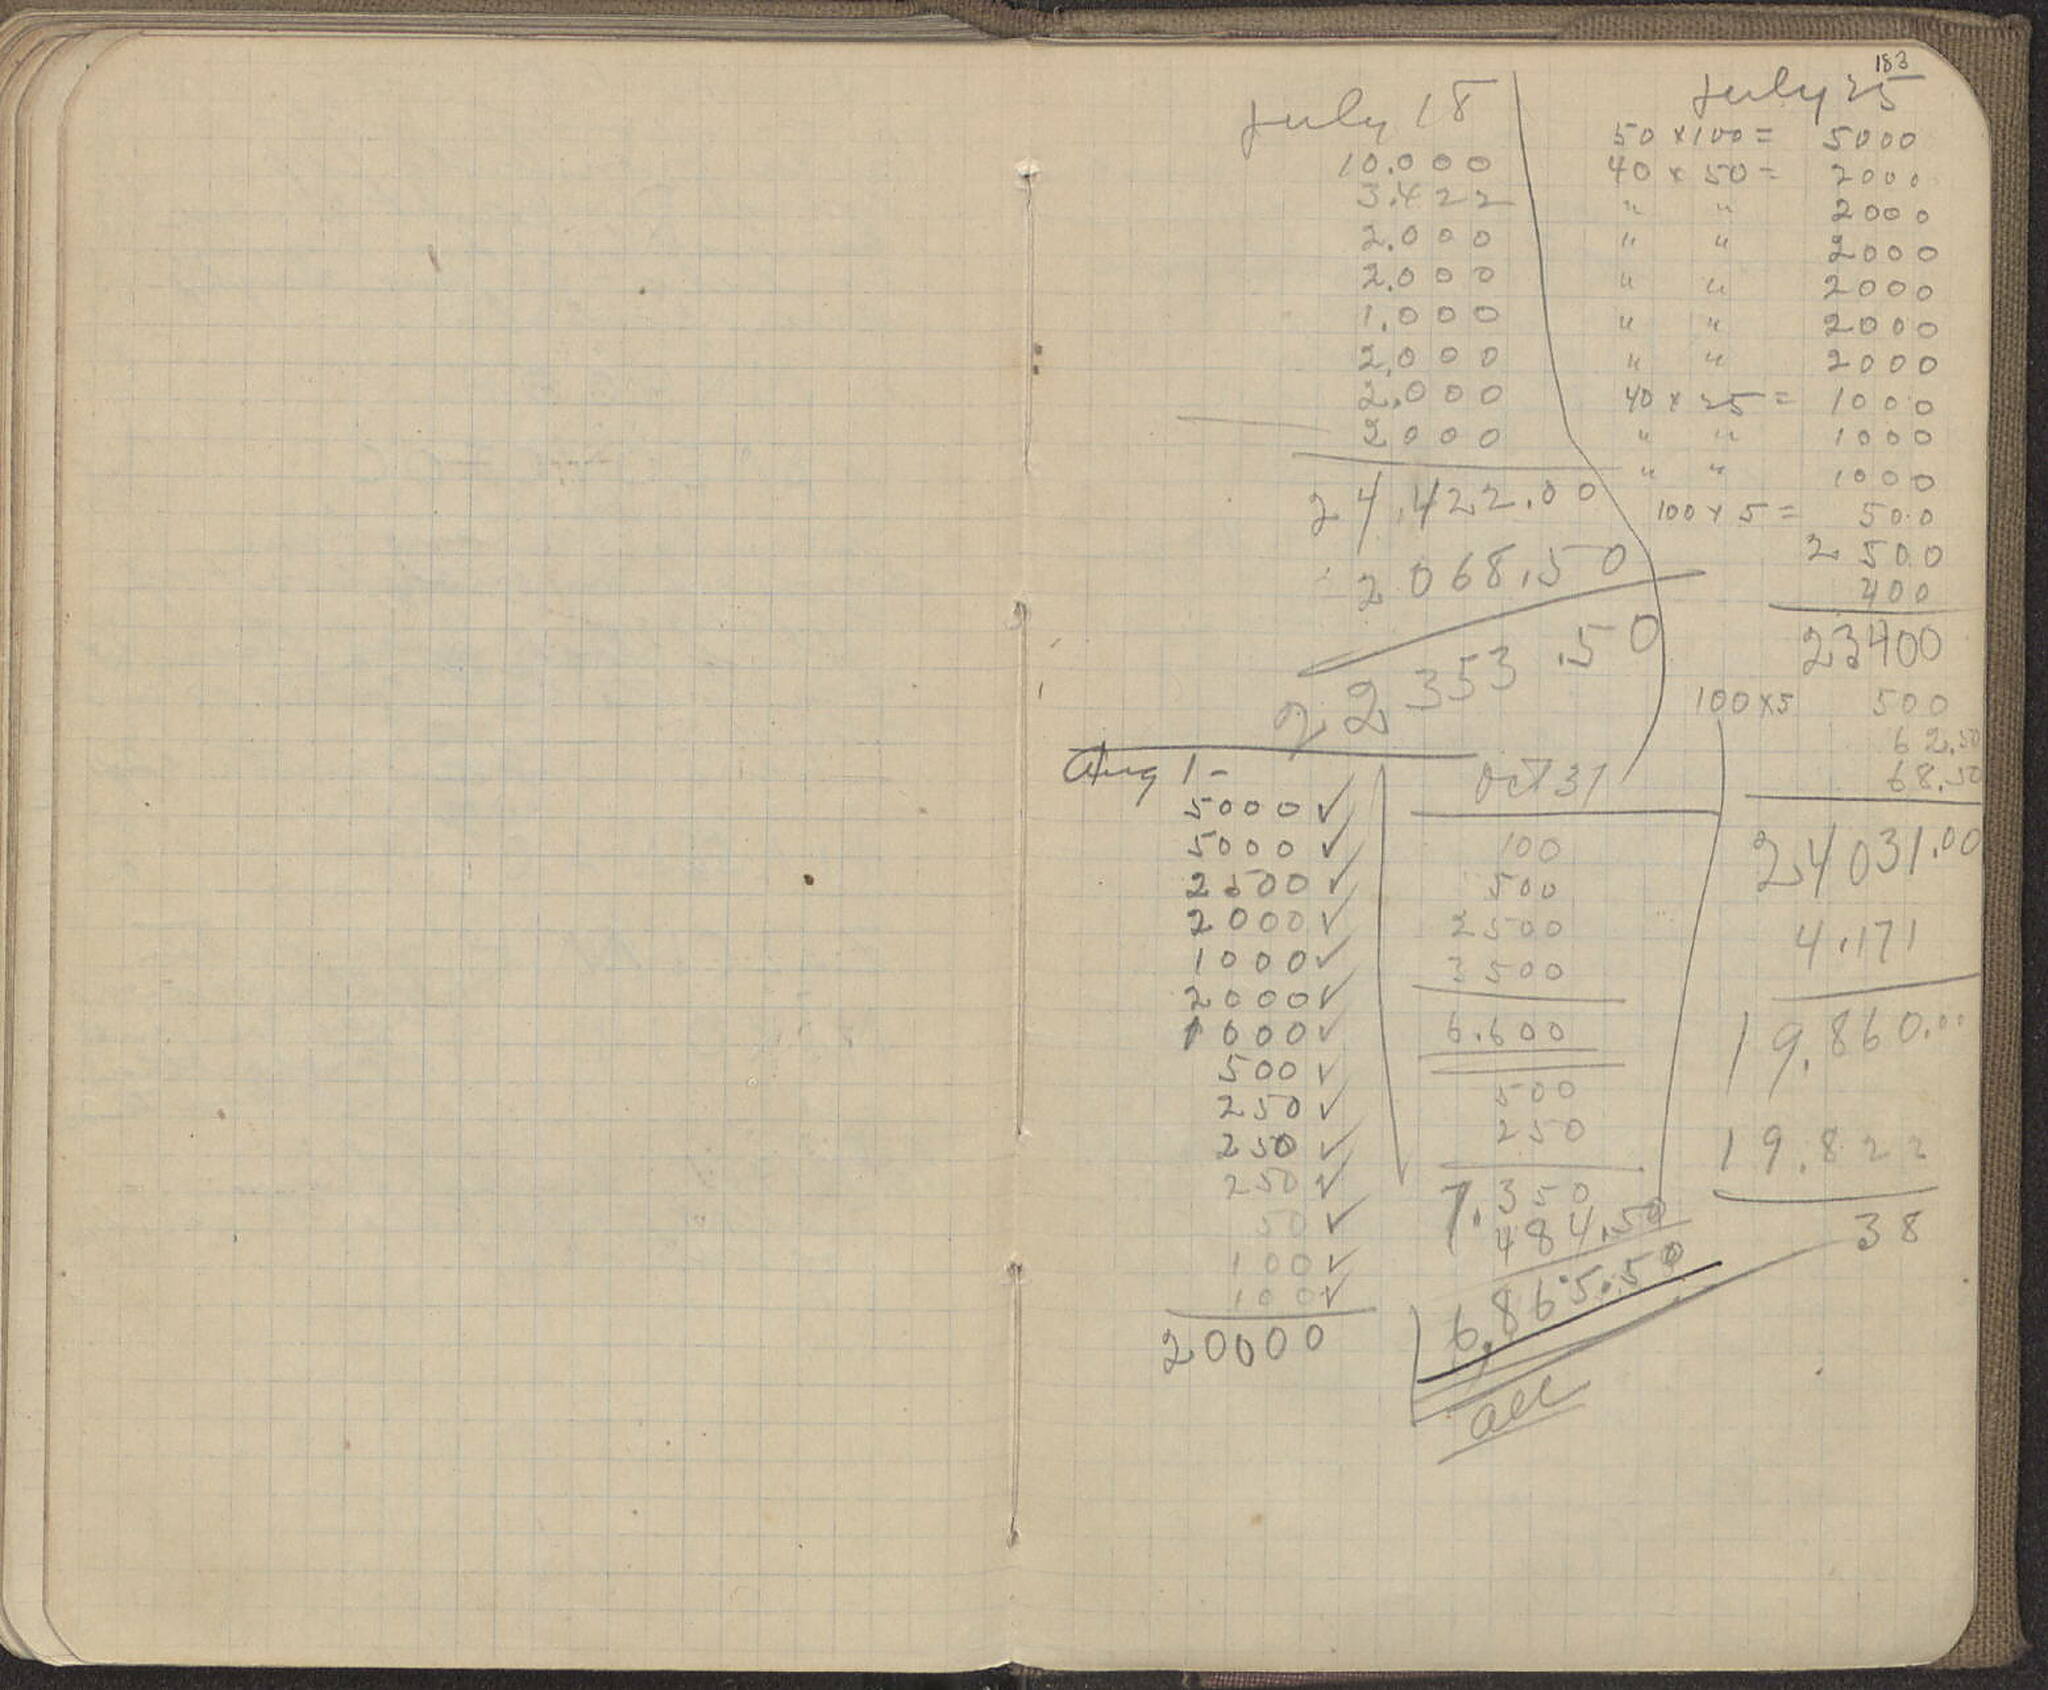 183
July 18
10.000
3.422
2.000
2.000
1.000
2.000
2.000
2000
24,422.00
2068.50
22353.50
July 25
50 x 100 = 5000
40 x 50 = 2000
" " 2000
" " 2000
" " 2000
" " 2000
" " 2000
40 x 25 = 1000
" " 1000
" " 1000
100 x 5 = 500
2500
400
23400
100 x 5 500
62.50
68.50
24031.00
4.171
19.860.00
19.822
38
Aug 1 -
5000 ✓
5000 ✓
2500 ✓
2000 ✓
1000 ✓
2000 ✓
1000 ✓
500 ✓
250 ✓
250 ✓
250 ✓
50 ✓
100 ✓
100 ✓
20000
Oct 31
100
500
2500
3500
6.600
500
250
7.350
484.50
6,865.50
all